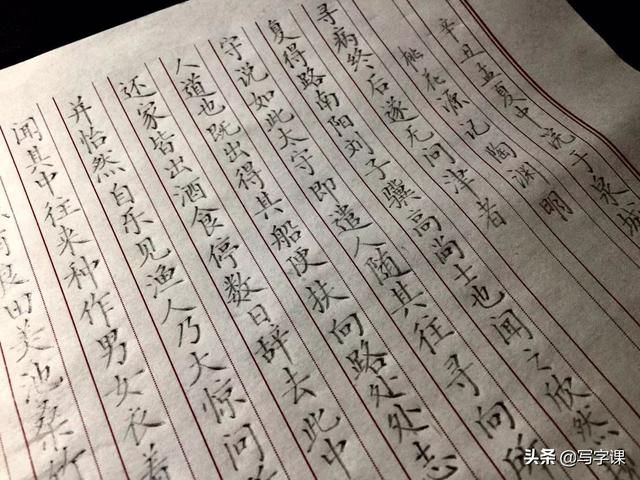 辛丑孟夏中浣于泉城
桃花源记 陶渊明
寻病终后遂无问津者
复得路南阳刘子骥高尚士也闻之欣然
守说如此太守即遣人随其往寻向所
人道也既出得其船便扶向路处处志
还家皆出酒食停数日辞去此中
并怡然自乐见渔人乃大惊问
闻其中往来种作男女衣着
良田美池桑竹
头条 @写字课